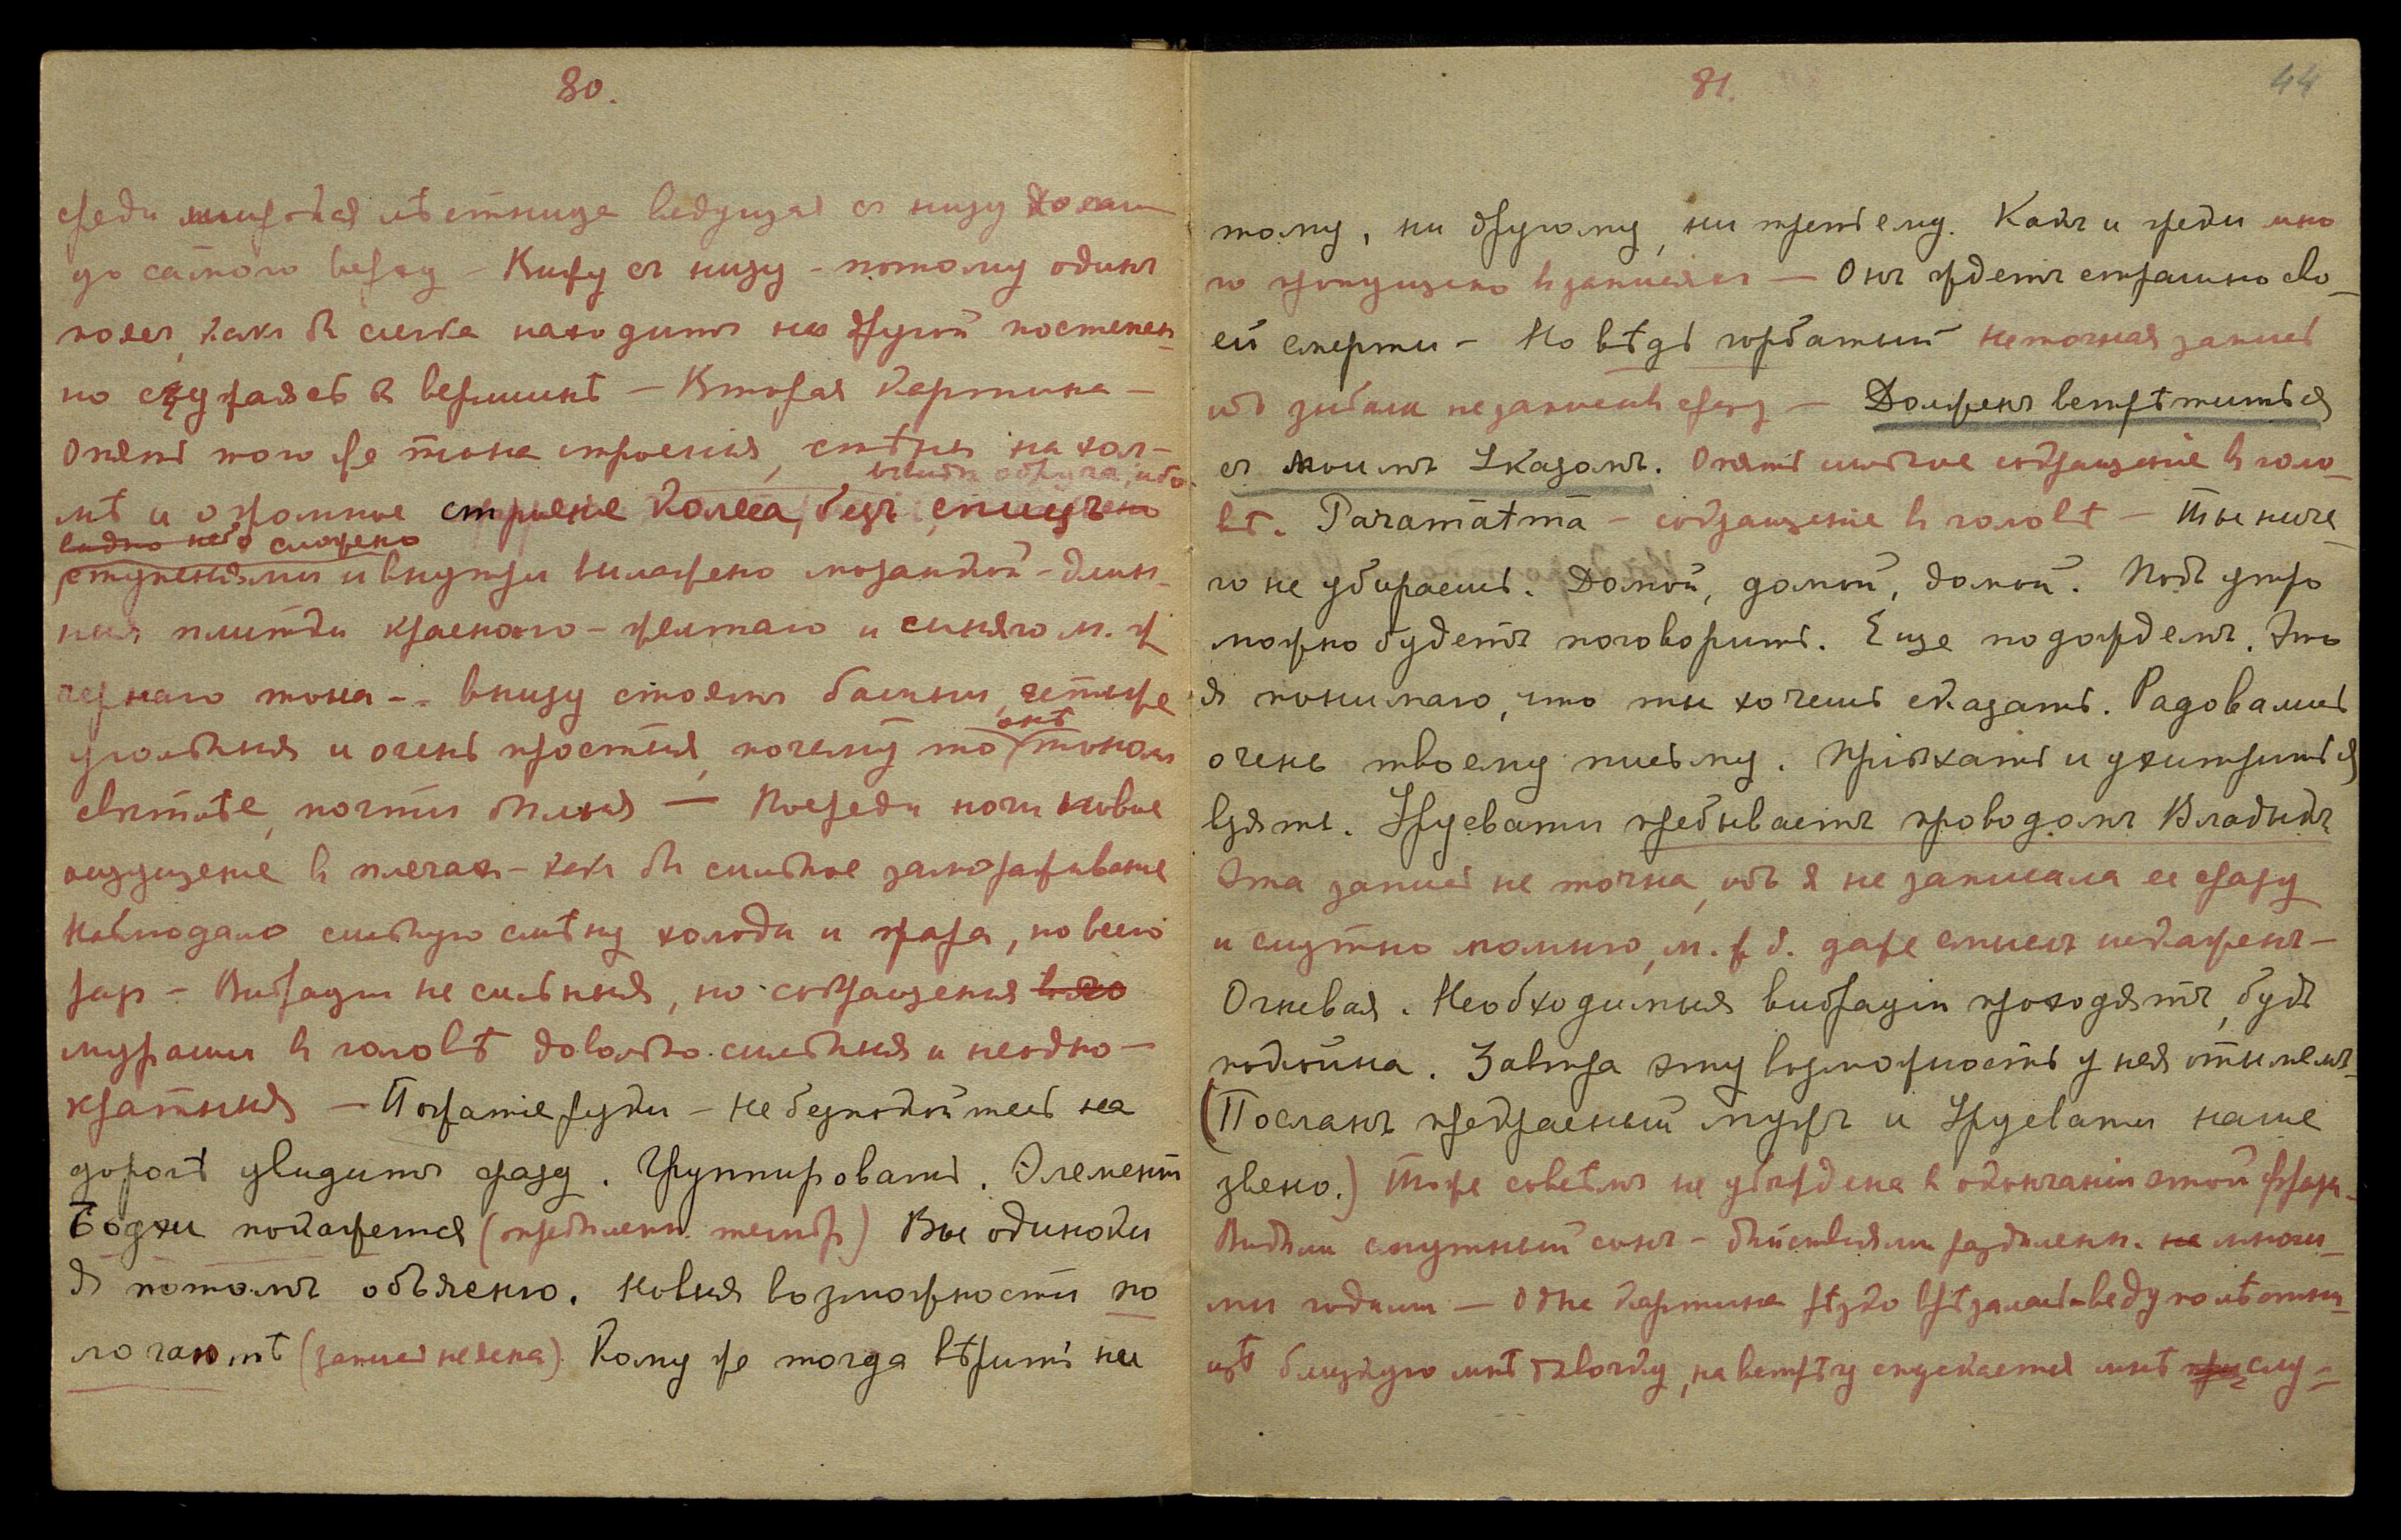 80.
среди широкая лѣстница ведущая съ низу холма
до самого верху — Кверху съ низу — потому одинъ
какъ бы слегка находитъ на другой постепен-
но съуживаясь к вершинѣ — Вторая картина —
Опять того же тона строенія, стѣны на хол-
мѣ и огромное строеніе колеса, безъ спицъ
обруча, ибо
видно сложено
ступенями и внутри выложено мозаикой — длин-
ныя плитки краснаго — желтаго и синяго м. ж
чернаго тона -- внизу стоятъ башни, четыре
угольныя и очень простыя, почему то тономъ
онѣ
свѣтлѣе, почти бѣлыя — Посреди ночи новое
ощущеніе в плечахъ — какъ бы сильное замораживаніе
Наблюдаю сильную смѣну холода и жара, но всего
жар — Вибрации не сильныя, но сокращения
мураши в головѣ довольно сильныя и неодно-
кратныя — Пожатіе руки — не безпокойтесь на
дорогѣ увидитъ сразу. Группировать. Элементъ
Бодхи покажется (опредѣленн. тембр) Вы одиноки
Я потомъ объясню. Новыя возможности по
могаютъ (запись неясна) Кому же тогда вѣрить ни
81.
44
тому, ни другому, ни третьему. Какъ и среди мно
го пропущено в записяхъ — Онъ ждетъ страшно сво-
ей смерти — Но вѣдь горбатый неточная запись
ибо забыла не записавъ сразу — Долженъ встрѣтиться
съ моимъ Указомъ. Опять сильное сокращеніе в голо-
вѣ. Paramatma — сокращеніе в головѣ — Ты ниче
го не убираешь. Домой, домой, домой. Подъ утро
можно будетъ поговорить. Еще подождемъ. Это
я понимаю, что ты хочешь сказать. Радовались
очень твоему письму. Пріѣхать и ухитриться
взять. Урусвати пребываетъ проводомъ Владыкъ
Эта запись не точна, ибо я не записала ее сразу
и смутно помню, м. б. даже смыслъ искаженъ —
Огневая. Необходимыя вибраціи проходятъ, будь
покойна. Завтра эту возможность у нея отнимемъ.
(Посланъ прекрасный мужъ и Урусвати наше
звено.) Тоже совсѣмъ не убѣждена в окончаніи этой фразы.
Видѣли смутный сонъ — дѣйствіями раздѣленн. многи-
ми годами — Одна картина рѣзко врѣзалась — веду по лѣстни-
цѣ близкую мнѣ дѣвочку, на встрѣчу спускается мнѣ слу-